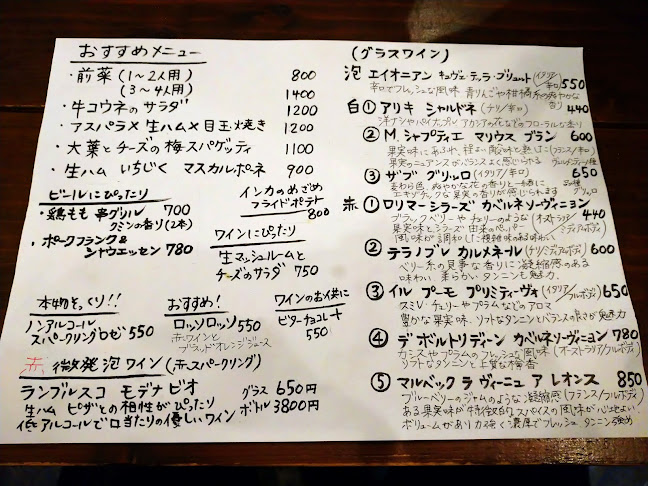 おすすめメニュー
・前菜(1〜2人用) 800
(3〜4人用) 1400
・牛コウネのサラダ 1200
・アスパラ×生ハム×目玉焼き 1200
・大葉とチーズの梅スパゲッティ 1100
・生ハム いちじく マスカルポーネ 900
ビールにぴったり
・鶏もも 串グリル 700
クミンの香り(2本)
・ポークフランク&
シャウエッセン 780
インカのめざめ
フライドポテト
800
ワインにぴったり
生マッシュルームと
チーズのサラダ 750
本物そっくり!!
ノンアルコール
スパークリングロゼ 550
おすすめ!
ロッソロッソ 550
赤ワインと
ブラッドオレンジジュース
ワインのお供に
ビターチョコレート
550
赤 微発泡ワイン(赤スパークリング)
ランブルスコ モデナ ビオ グラス 650円
生ハム ピザとの相性がぴったり ボトル 3800円
低アルコールで口あたりの優しいワイン
(グラスワイン)
泡 エイオーアン キュヴェ・テッラ・ブリュット(イタリア/辛口) 550
辛口でフレッシュな風味 青りんごや柑橘系の爽やかな香り
白① アリキ シャルドネ (チリ/辛口) 440
洋ナシやパイナップル アカシアの花などのフローラルな香り
② M.シャプティエ マリウス ブラン 600
果実味にあふれ、程よい酸味と熟した (フランス/辛口)
果実のニュアンスがバランスよく感じられる
③ ザブ グリッロ (イタリア/辛口) 650
麦わら色、爽やかな花の香りと一緒に
エキゾチックな果実の香りが感じられます
赤① ロリマー シラーズ カベルネソーヴィニョン
ブラックベリーやチェリーのような (オーストラリア/ミディアムボディ) 440
果実味とシラーズ由来のペッパー
風味が調和した複雑味のある味わい
② テラノブレ カルメネール (チリ/ミディアムボディ) 600
ベリー系の見事な香りに凝縮感のある
味わい 柔らかいタンニンも魅力
③ イル プーモ プリミティーヴォ (イタリア/フルボディ) 650
スミレ・チェリーやプラムなどのアロマ
豊かな果実味、ソフトなタンニンとバランスの良さが魅力
④ デ ボルトリ ディーン カベルネソーヴィニョン 780
カシスやプラムのフレッシュな風味 (オーストラリア/フルボディ)
ソフトなタンニンと上質な樽香
⑤ マルベック ラ ヴィーニュ ア レオンス 850
ブルーベリーのジャムのような凝縮感 (フランス/フルボディ)
ある果実味が特徴的 スパイスの風味が心地よい
ボリュームがあり力強く濃厚でフレッシュ タンニン強め